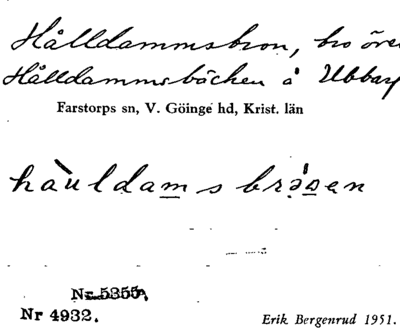 Hålldammsbron, bro över
Hålldammsbäcken å Ubbar
Farstorps sn, V. Göinge hd, Krist. län
hàuldam s brǝ́ɷen
Nr 5355,
Nr 4932.
Erik Bergenrud 1951.